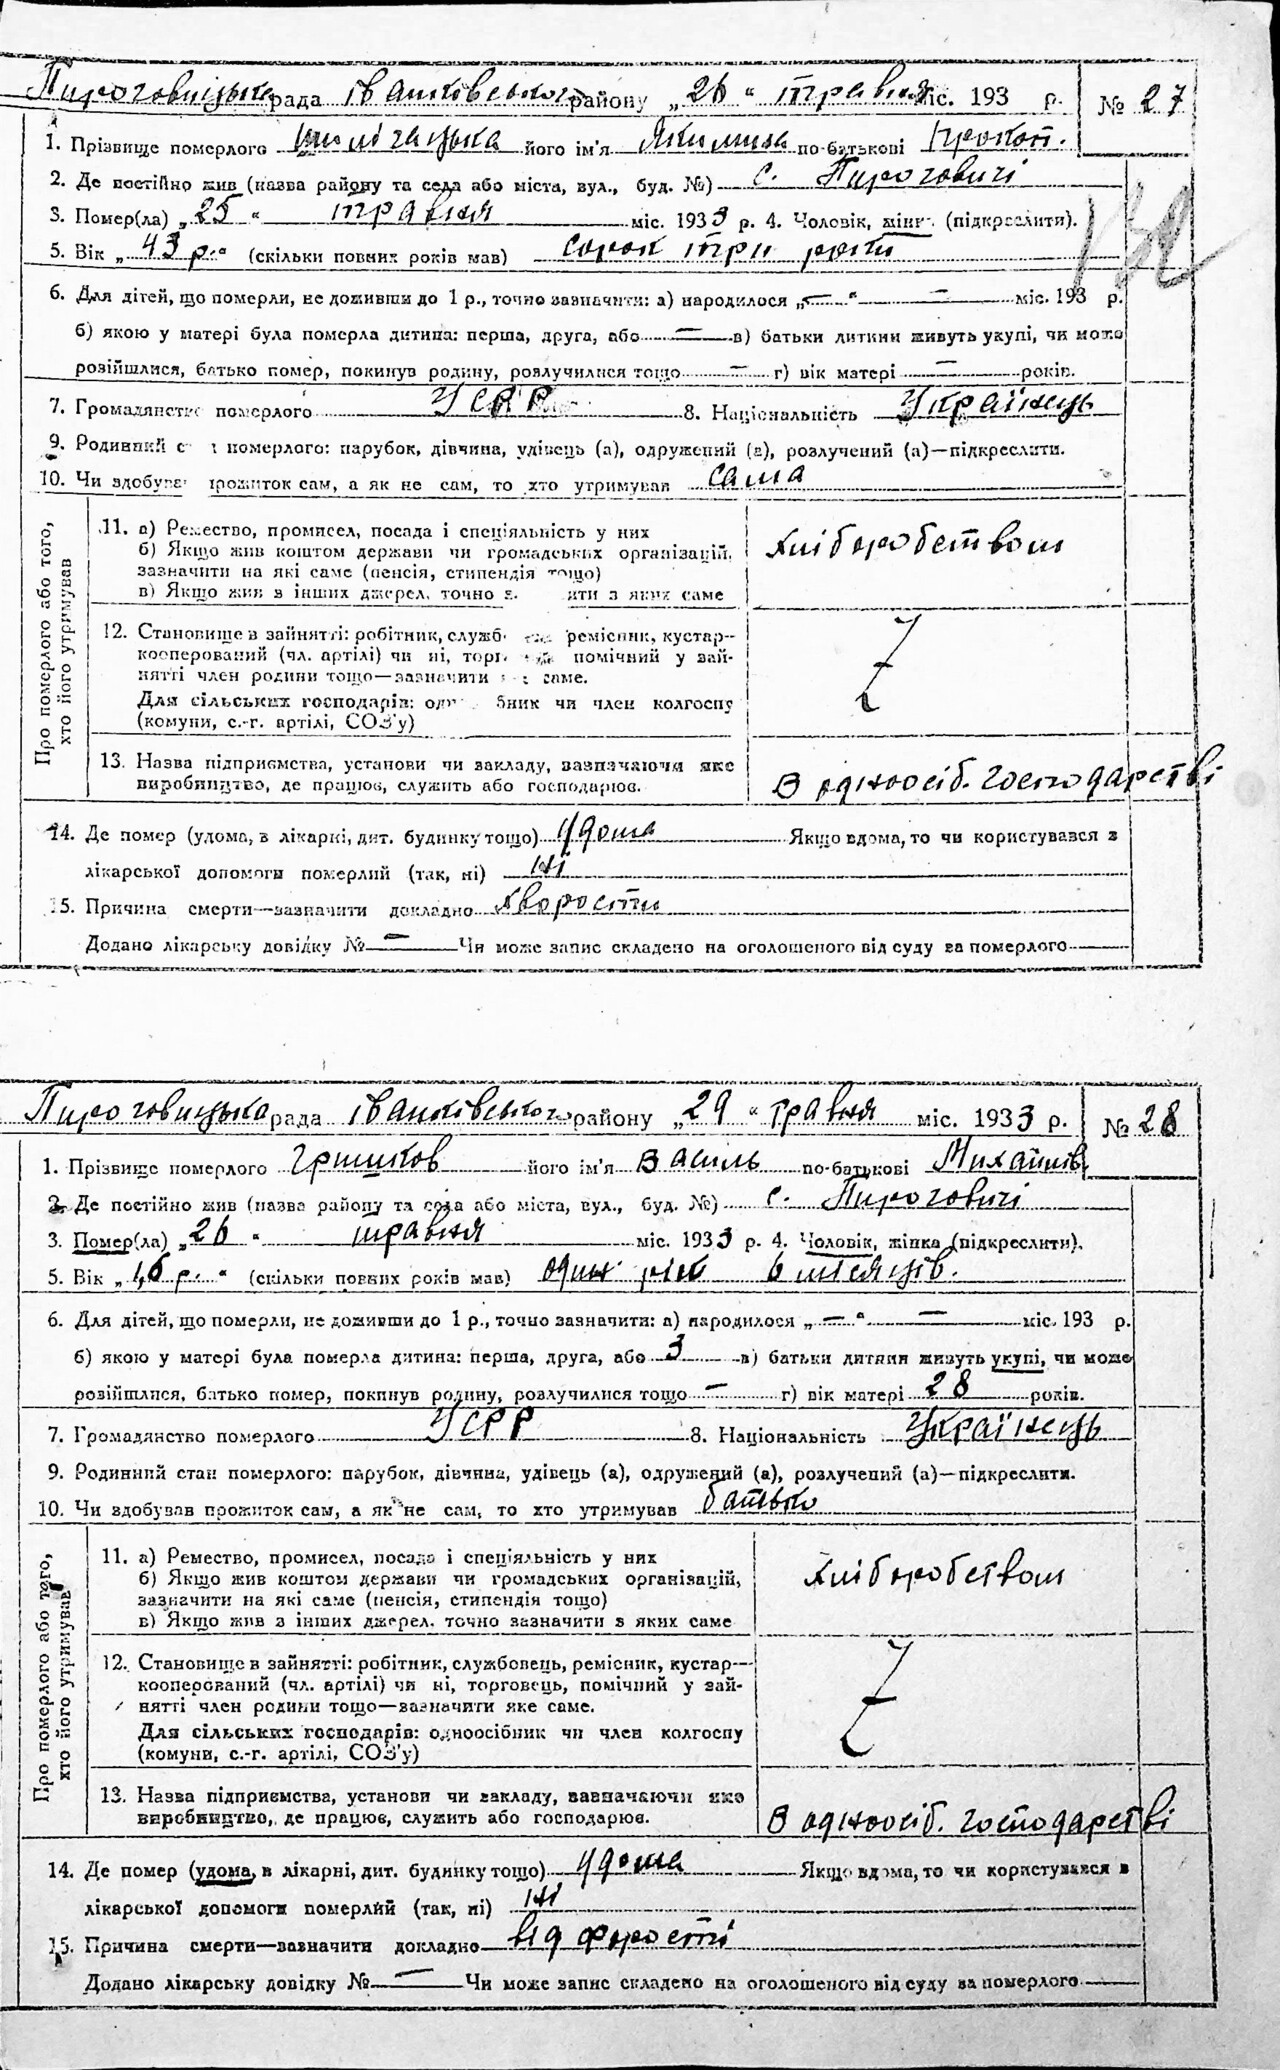 Пироговицька рада Іванківського району „26“ травня міс. 193 р. № 27
1. Прізвище померлого його ім'я Якилина по-батькові Прокоп.
2. Де постійно жив (назва району та села або міста, вул., буд. №) с. Пироговичі
3. Помер(ла) „25“ травня міс. 1933 р. 4. Чоловік, жінк. (підкреслити).
5. Вік „43 р.“ (скільки повних років мав) сорок три роки
6. Для дітей, що померли, не доживши до 1 р., точно зазначити: а) народилося „—“ — міс. 193 р.
б) якою у матері була померла дитина: перша, друга, або — в) батьки дитини живуть укупі, чи може
розійшлися, батько помер, покинув родину, розлучилися тощо — г) вік матері — років.
7. Громадянство померлого УСРР 8. Національність Українець
9. Родинний с померлого: парубок, дівчина, удівець (а), одружений (а), розлучений (а)—підкреслити.
10. Чи здобував прожиток сам, а як не сам, то хто утримував сама
Про померлого або того,
хто його утримував
11. а) Ремество, промисел, посада і спеціяльність у них
б) Якщо жив коштом держави чи громадських організацій,
зазначити на які саме (пенсія, стипендія тощо)
в) Якщо жив з інших джерел, точно з яких саме
Хліборобством
12. Становище в зайнятті: робітник, служб ремісник, кустар—
кооперований (чл. артілі) чи ні, торг помічний у зай-
нятті член родини тощо—зазначити саме.
Для сільських господарів: од бник чи член колгоспу
(комуни, с.-г. артілі, СОЗ'у)
13. Назва підприємства, установи чи закладу, зазначаючи яке
виробництво, де працює, служить або господарює.
В одноосіб. господарстві
14. Де помер (удома, в лікарні, дит. будинку тощо) удома Якщо вдома, то чи користувався з
лікарської допомоги померлий (так, ні) ні
15. Причина смерти—зазначити докладно хворости
Додано лікарську довідку № — Чи може запис складено на оголошеного від суду за померлого —
Пироговицька рада Іванківського району „29“ травня міс. 1933 р. № 28
1. Прізвище померлого Гришков його ім'я Василь по-батькові Михайлів.
2. Де постійно жив (назва району та села або міста, вул., буд. №) с. Пироговичі
3. Помер(ла) „26“ травня міс. 1933 р. 4. Чоловік, жінка (підкреслити).
5. Вік „1,6 р.“ (скільки повних років мав) один рік 6 місяців.
6. Для дітей, що померли, не доживши до 1 р., точно зазначити: а) народилося „—“ — міс. 193 р.
б) якою у матері була померла дитина: перша, друга, або 3 в) батьки дитини живуть укупі, чи може
розійшлися, батько помер, покинув родину, розлучилися тощо — г) вік матері 28 років.
7. Громадянство померлого УСРР 8. Національність Українець
9. Родинний стан померлого: парубок, дівчина, удівець (а), одружений (а), розлучений (а)—підкреслити.
10. Чи здобував прожиток сам, а як не сам, то хто утримував батько
Про померлого або того,
хто його утримував
11. а) Ремество, промисел, посада і спеціяльність у них
б) Якщо жив коштом держави чи громадських організацій,
зазначити на які саме (пенсія, стипендія тощо)
в) Якщо жив з інших джерел, точно зазначити з яких саме
Хліборобством
12. Становище в зайнятті: робітник, службовець, ремісник, кустар—
кооперований (чл. артілі) чи ні, торговець, помічний у зай-
нятті член родини тощо—зазначити яке саме.
Для сільських господарів: одноосібник чи член колгоспу
(комуни, с.-г. артілі, СОЗ'у)
13. Назва підприємства, установи чи закладу, зазначаючи яке
виробництво, де працює, служить або господарює.
В одноосіб. господарстві
14. Де помер (удома, в лікарні, дит. будинку тощо) удома Якщо вдома, то чи користувався з
лікарської допомоги померлий (так, ні) ні
15. Причина смерти—зазначити докладно від
Додано лікарську довідку № — Чи може запис складено на оголошеного від суду за померлого —